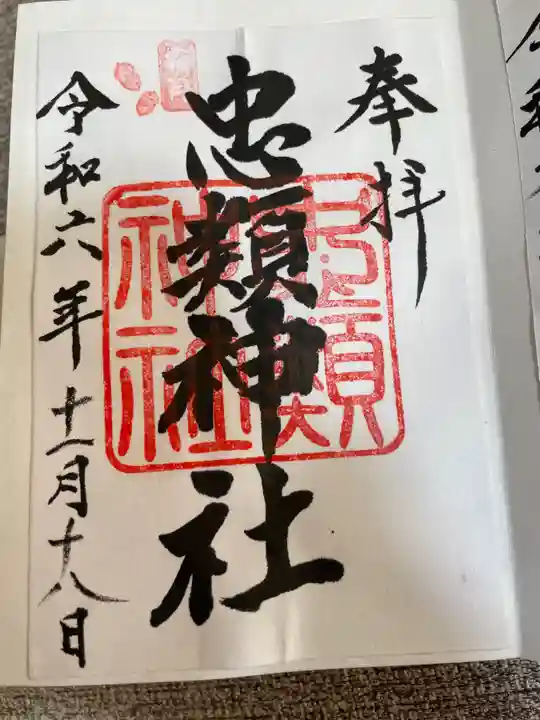 奉拝
忠類神社
令和六年十一月十八日
忠類
神社